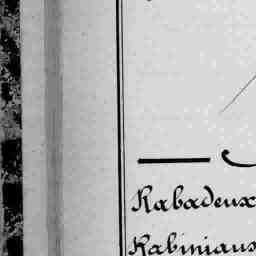 Rabadeux
Rabiniaux